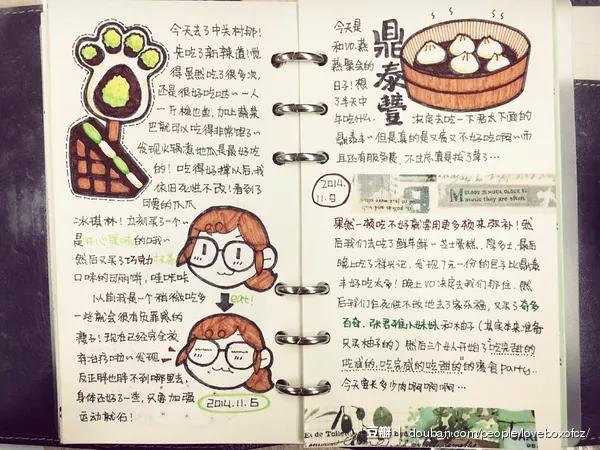 今天去了中关村耶!
先吃了新辣道!觉
得虽然吃了很多次,
还是很好吃哒~一人
一斤梭边鱼,加上蔬菜
巴就可以吃得非常饱了~
发现火锅煮地瓜是最好吃
的!吃得好撑以后,我
依旧死性不改!看到了
可爱的爪爪
冰琪林!立刻买了一个~
是开心果味的哦~
然后又买了巧克力抹茶
口味的可丽饼,哇咔咔
以前我是一个稍微吃多
一些就会很有负罪感的
孩子!现在已经完全放
弃治疗啦~发现
反正胖也胖不到哪里去,
身体还好了一些,只要加强
运动就行!
eat!
2014.11.5
今天是
和VO.燕
燕聚会的
日子!想
了半天中
午吃什么,
鼎泰豐
决定去吃一下君太下面的
鼎泰丰~但是真的是又贵又不好吃啊~而
且还有服务费,不过总算是拔了草了…
2014.
11.9
MELODY IS MUCH OLDER
music they are often
果然一顿吃不好就需要用更多顿来弥补!然
后我们去吃了鲜芋鲜…芝士蛋糕,周黑鸭,最后
晚上吃了祥兴记,发现7元一份的包子比鼎泰
丰好吃太多!晚上VO决定去我们那住,然
后我们在死性不改地去了家乐福,又买了奇多
百奇、张君雅小妹妹和柚子(其实本来准备
只买柚子的)然后三个人开始了吃完甜的
吃咸的,吃完咸的吃甜的的漫食party..
今天要长多少肉啊啊啊啊…
Es de Toile
豆瓣 douban.com/people/loveboxofcz/